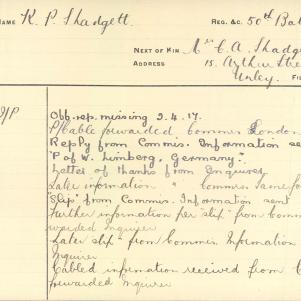 NAME K. P. Shadgett REG. &C. 50th Bat
NEXT OF KIN Mr C. A. Shadge
ADDRESS 15. Arthur Stree
Unley. FIL
Off. rep. missing 2.4.17.
P/Cable forwarded, Commis London
Reply from Commis. Information sen
"P of W. Limberg, Germany".
Letter of thanks from Enquirer
Later information " Commis. same fo
"Slip" from Commis. Information sent
Further information per slip" from Comm
warded Inquirer
Later slip" from Commis. Information
Inquirer
Cabled information received from
forwarded Inquirer